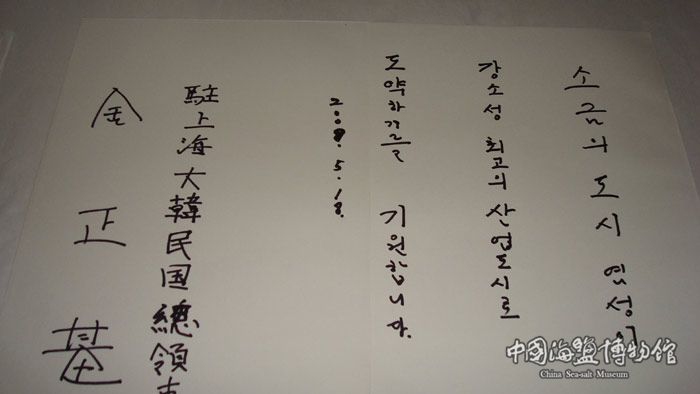 소금의 도시 염성이
강소성 최고의 산업도시로
도약하기를 기원합니다.
2008.5.18.
駐上海大韓民国總領
金正基
中國海鹽博物館
China Sea-salt Museum